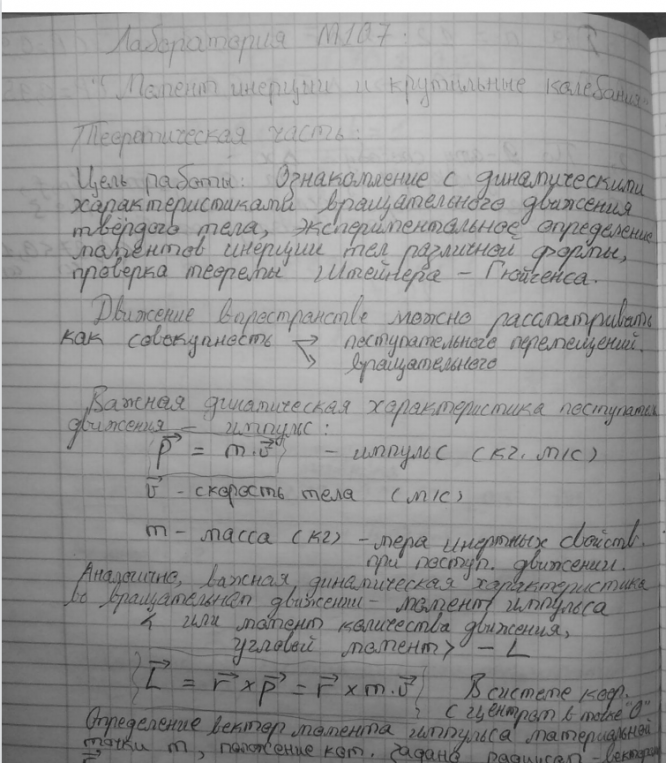 Лаборатория М107.
"Момент инерции и крутильные колебания"
Теоретическая часть:
Цель работы: Ознакомление с динамическими
характеристиками вращательного движения
твёрдого тела, экспериментальное определение
моментов инерции тел различной формы,
проверка теоремы Штейнера – Гюйгенса.
Движение в пространстве можно рассматривать
как совокупность → поступательного перемещений.
↘ вращательного
Важная динамическая характеристика поступательн
движения – импульс:
p⃗ = m·v⃗ – импульс (кг·м/с)
v⃗ - скорость тела (м/с)
m – масса (кг) – мера инертных свойств.
при поступ. движении.
Аналогично, важная динамическая характеристика
во вращательном движении – момент импульса
< или момент количества движения,
угловой момент> – L
L⃗ = r⃗ × p⃗ = r⃗ × m·v⃗ В системе коор.
с центром в точке "О"
Определение вектор момента импульса материальной
точки m, положение кот. задано радиусом – вектором